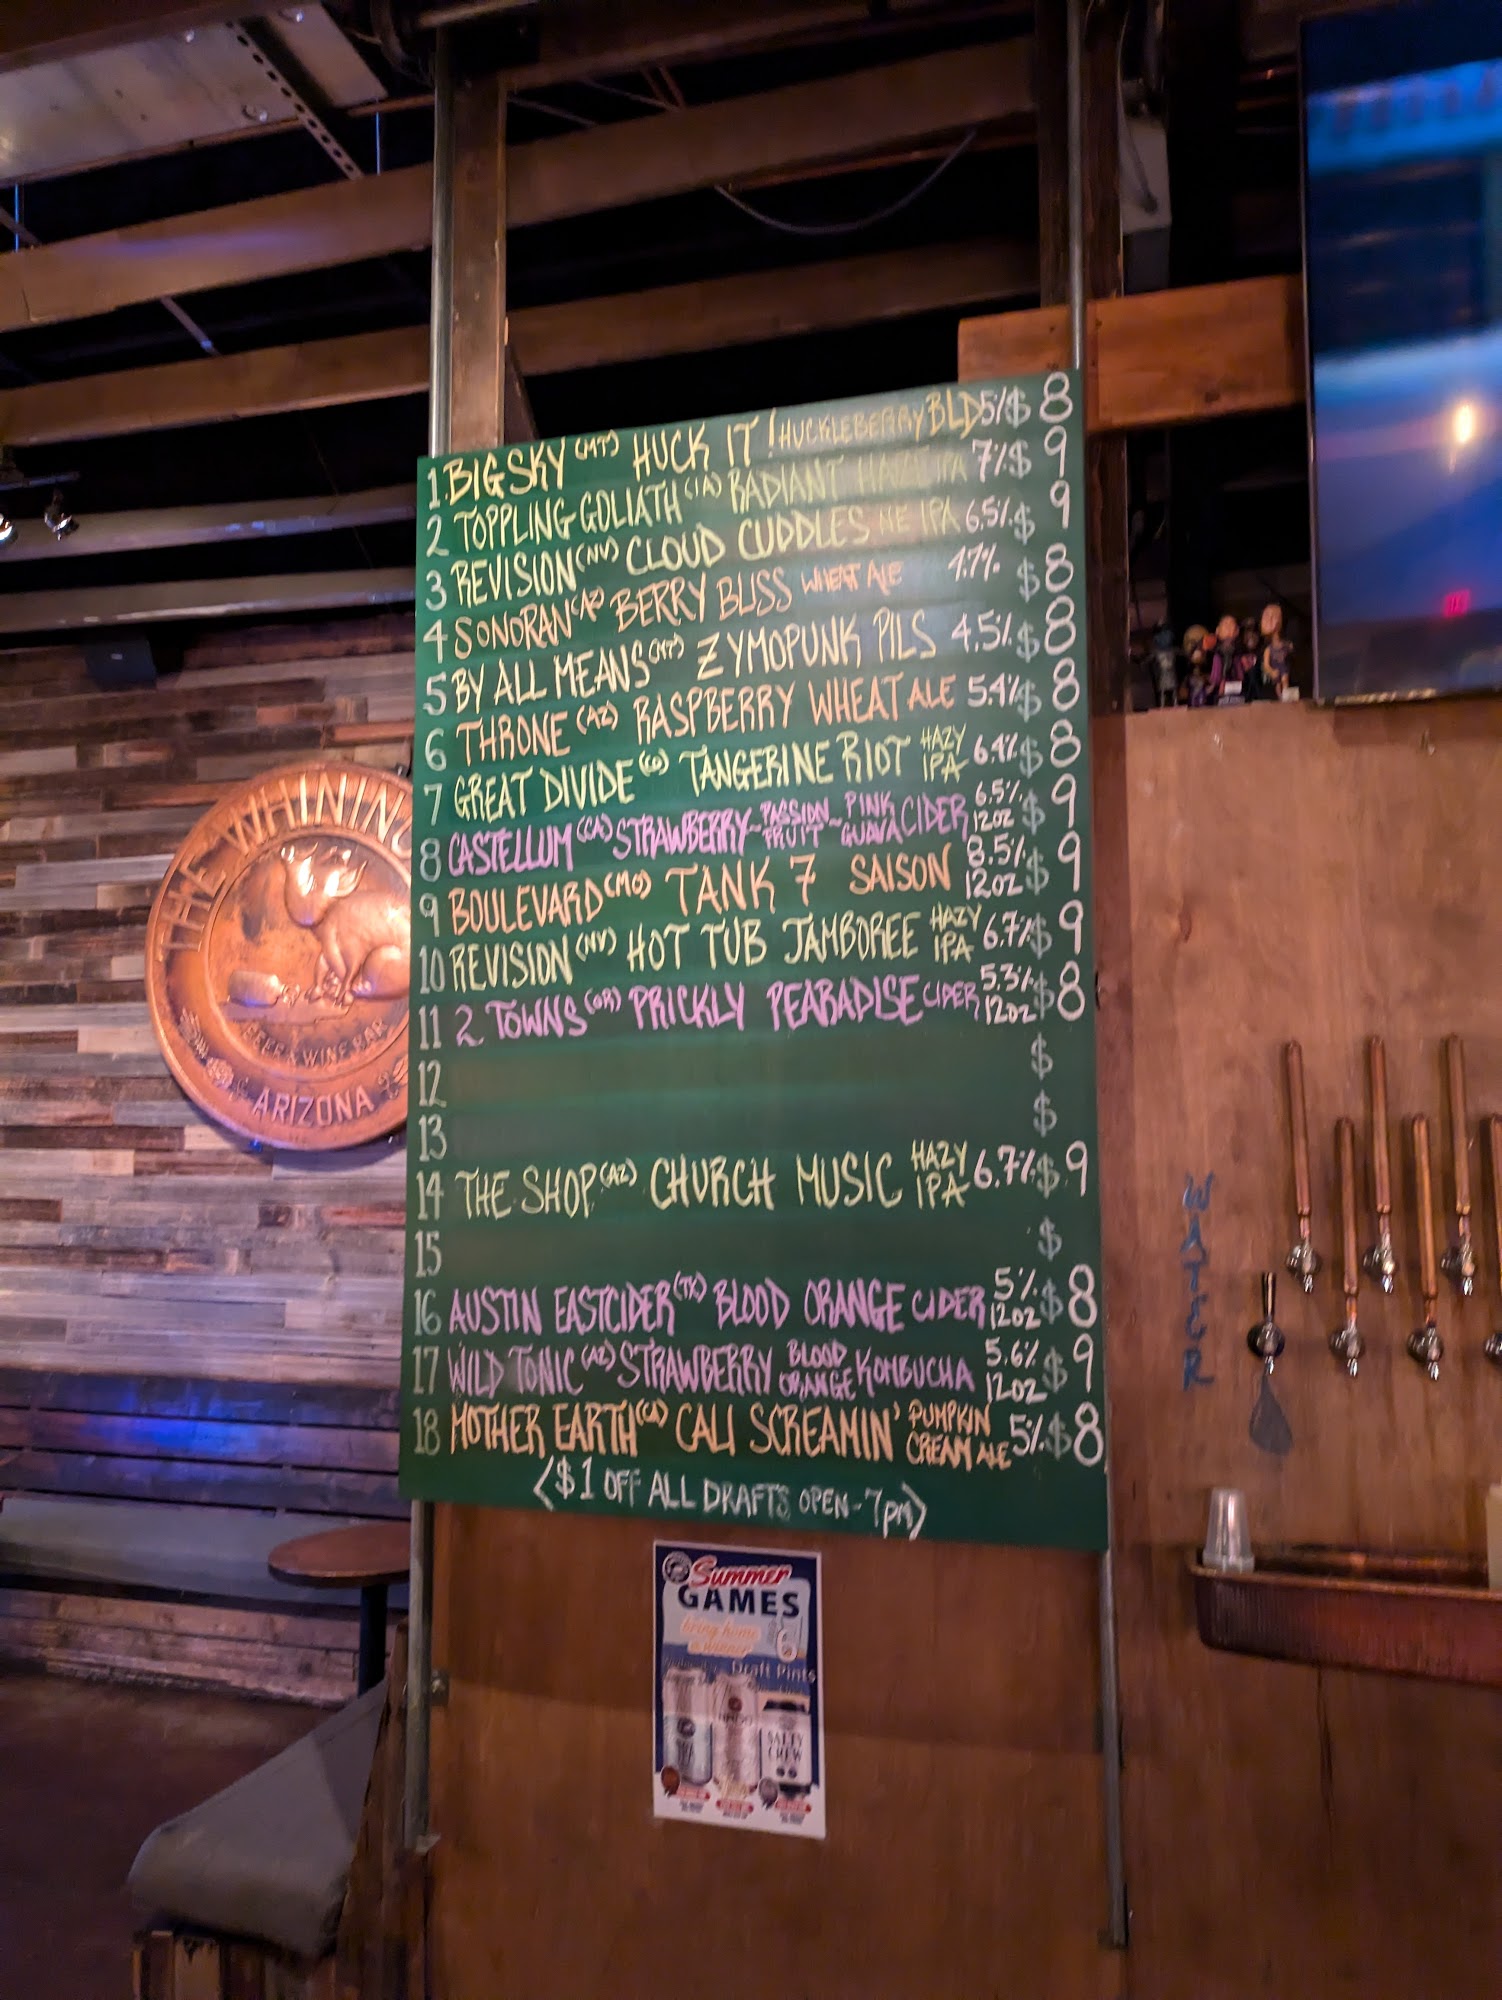 1. BIG SKY (MT) HUCK IT! HUCKLEBERRY BLD 5% $ 8
2 TOPPLING GOLIATH (IA) RADIANT HAZE IPA 7% $ 9
3 REVISION (NV) CLOUD CUDDLES NE IPA 6.5% $ 9
4 SONORAN (AZ) BERRY BLISS WHEAT ALE 4.7% $ 8
5 BY ALL MEANS (MT) ZYMOPUNK PILS 4.5% $ 8
6 THRONE (AZ) RASPBERRY WHEAT ALE 5.4% $ 8
7 GREAT DIVIDE (CO) TANGERINE RIOT HAZY IPA 6.4% $ 8
8 CASTELLUM (CA) STRAWBERRY-PASSION FRUIT-PINK GUAVA CIDER 6.5% 12OZ $ 9
9 BOULEVARD (MO) TANK 7 SAISON 8.5% 12OZ $ 9
10 REVISION (NV) HOT TUB JAMBOREE HAZY IPA 6.7% $ 9
11 2 TOWNS (OR) PRICKLY PEARADISE CIDER 5.3% 12OZ $ 8
12 $
13 $
14 THE SHOP (AZ) CHURCH MUSIC HAZY IPA 6.7% $ 9
15 $
16 AUSTIN EASTCIDER (TX) BLOOD ORANGE CIDER 5% 12OZ $ 8
17 WILD TONIC (AZ) STRAWBERRY BLOOD ORANGE KOMBUCHA 5.6% 12OZ $ 9
18 MOTHER EARTH (CA) CALI SCREAMIN' PUMPKIN CREAM ALE 5% $ 8
<$1 OFF ALL DRAFTS OPEN-7pm>
THE WHINING
BEER & WINE BAR
ARIZONA
WATER
Summer
GAMES
bring home
a winner
6
Draft Pints
SALTY
CREW